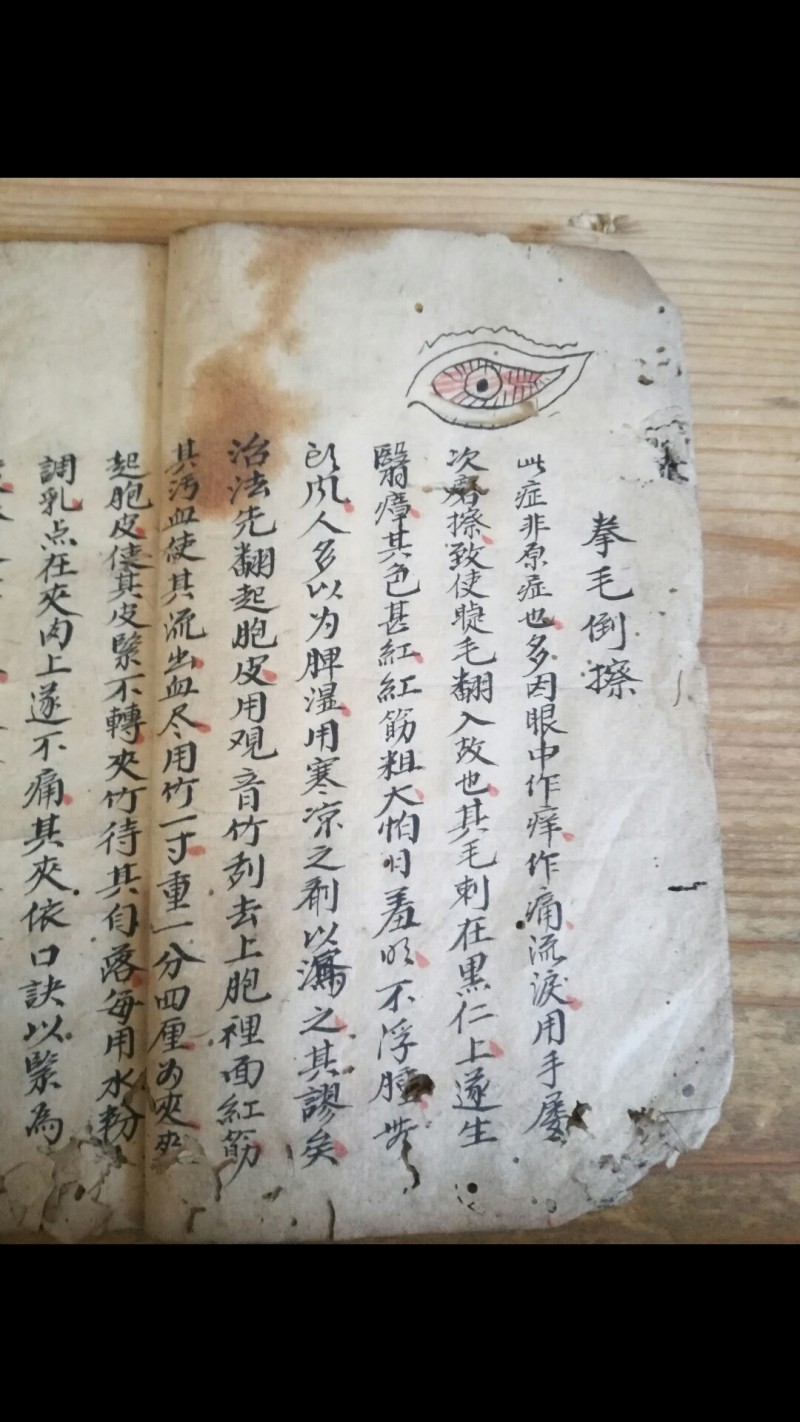 拳毛倒擦
此症非原症也多因眼中作痒作痛流淚用手屡
次磨擦致使睫毛翻入故也其毛刺在黑仁上遂生
翳瘴其色甚紅紅筋粗大怕日羞明不浮腫
凡人多以为脾湿用寒凉之剤以瀉之其謬矣
治法先翻起胞皮用观音竹刮去上胞裡面紅筋
其污血使其流出血尽用竹一寸重一分四厘为夾夾
起胞皮使其皮緊不轉夾竹待其自落每用水粉
調乳点在夾肉上遂不痛其夾依口訣以緊為